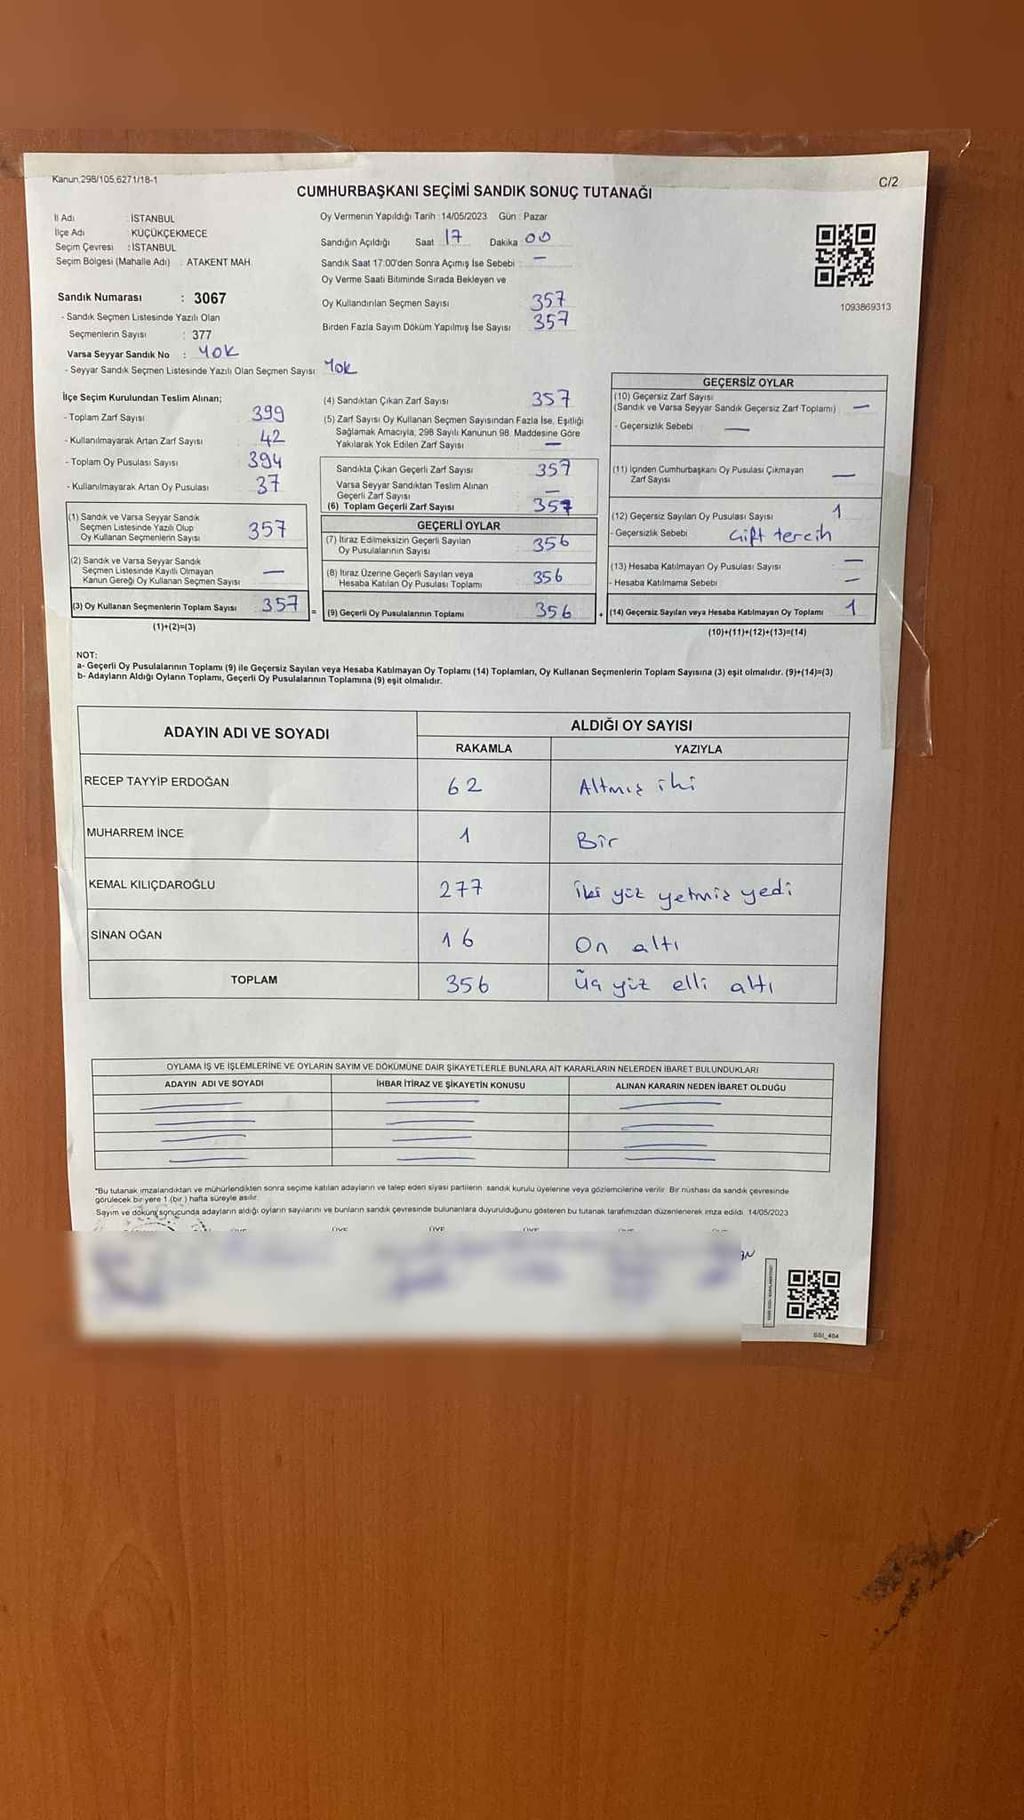 Kanun.298/105.6271/18-1
C/2
CUMHURBAŞKANI SEÇİMİ SANDIK SONUÇ TUTANAĞI
İl Adı : İSTANBUL
İlçe Adı : KÜÇÜKÇEKMECE
Seçim Çevresi : İSTANBUL
Seçim Bölgesi (Mahalle Adı) : ATAKENT MAH.
Sandık Numarası : 3067
- Sandık Seçmen Listesinde Yazılı Olan
Seçmenlerin Sayısı : 377
Varsa Seyyar Sandık No : Yok
- Seyyar Sandık Seçmen Listesinde Yazılı Olan Seçmen Sayısı: Yok
Oy Vermenin Yapıldığı Tarih :14/05/2023 Gün : Pazar
Sandığın Açıldığı Saat 17 Dakika 00
Sandık Saat 17:00'den Sonra Açımış İse Sebebi : —
Oy Verme Saati Bitiminde Sırada Bekleyen ve
Oy Kullandırılan Seçmen Sayısı 357
Birden Fazla Sayım Döküm Yapılmış İse Sayısı 357
1093869313
İlçe Seçim Kurulundan Teslim Alınan;
- Toplam Zarf Sayısı 399
- Kullanılmayarak Artan Zarf Sayısı 42
- Toplam Oy Pusulası Sayısı 394
- Kullanılmayarak Artan Oy Pusulası 37
(1) Sandık ve Varsa Seyyar Sandık
Seçmen Listesinde Yazılı Olup
Oy Kullanan Seçmenlerin Sayısı 357
(2) Sandık ve Varsa Seyyar Sandık
Seçmen Listesinde Kayıtlı Olmayan
Kanun Gereği Oy Kullanan Seçmen Sayısı —
(3) Oy Kullanan Seçmenlerin Toplam Sayısı 357
(1)+(2)=(3)
(4) Sandıktan Çıkan Zarf Sayısı 357
(5) Zarf Sayısı Oy Kullanan Seçmen Sayısından Fazla İse, Eşitliği
Sağlamak Amacıyla, 298 Sayılı Kanunun 98. Maddesine Göre
Yakılarak Yok Edilen Zarf Sayısı —
Sandıkta Çıkan Geçerli Zarf Sayısı 357
Varsa Seyyar Sandıktan Teslim Alınan
Geçerli Zarf Sayısı —
(6) Toplam Geçerli Zarf Sayısı 357
GEÇERLİ OYLAR
(7) İtiraz Edilmeksizin Geçerli Sayılan
Oy Pusulalarının Sayısı 356
(8) İtiraz Üzerine Geçerli Sayılan veya
Hesaba Katılan Oy Pusulası Toplamı 356
= (9) Geçerli Oy Pusulalarının Toplamı 356
GEÇERSİZ OYLAR
(10) Geçersiz Zarf Sayısı
(Sandık ve Varsa Seyyar Sandık Geçersiz Zarf Toplamı) —
- Geçersizlik Sebebi —
(11) İçinden Cumhurbaşkanı Oy Pusulası Çıkmayan
Zarf Sayısı —
(12) Geçersiz Sayılan Oy Pusulası Sayısı 1
- Geçersizlik Sebebi Çift tercih
(13) Hesaba Katılmayan Oy Pusulası Sayısı —
- Hesaba Katılmama Sebebi —
+ (14) Geçersiz Sayılan veya Hesaba Katılmayan Oy Toplamı 1
(10)+(11)+(12)+(13)=(14)
NOT:
a- Geçerli Oy Pusulalarının Toplamı (9) ile Geçersiz Sayılan veya Hesaba Katılmayan Oy Toplamı (14) Toplamları, Oy Kullanan Seçmenlerin Toplam Sayısına (3) eşit olmalıdır. (9)+(14)=(3)
b- Adayların Aldığı Oyların Toplamı, Geçerli Oy Pusulalarının Toplamına (9) eşit olmalıdır.
ADAYIN ADI VE SOYADI ALDIĞI OY SAYISI
RAKAMLA YAZIYLA
RECEP TAYYİP ERDOĞAN 62 Altmış iki
MUHARREM İNCE 1 Bir
KEMAL KILIÇDAROĞLU 277 iki yüz yetmiş yedi
SİNAN OĞAN 16 On altı
TOPLAM 356 Üç yüz elli altı
OYLAMA İŞ VE İŞLEMLERİNE VE OYLARIN SAYIM VE DÖKÜMÜNE DAİR ŞİKAYETLERLE BUNLARA AİT KARARLARIN NELERDEN İBARET BULUNDUKLARI
ADAYIN ADI VE SOYADI İHBAR İTİRAZ VE ŞİKAYETİN KONUSU ALINAN KARARIN NEDEN İBARET OLDUĞU
*Bu tutanak imzalandıktan ve mühürlendikten sonra seçime katılan adayların ve talep eden siyasi partilerin sandık kurulu üyelerine veya gözlemcilerine verilir. Bir nüshası da sandık çevresinde
görülecek bir yere 1 (bir) hafta süreyle asılır.
Sayım ve döküm sonucunda adayların aldığı oyların sayılarını ve bunların sandık çevresinde bulunanlara duyurulduğunu gösteren bu tutanak tarafımızdan düzenlenerek imza edildi. 14/05/2023
ÜYE ÜYE ÜYE